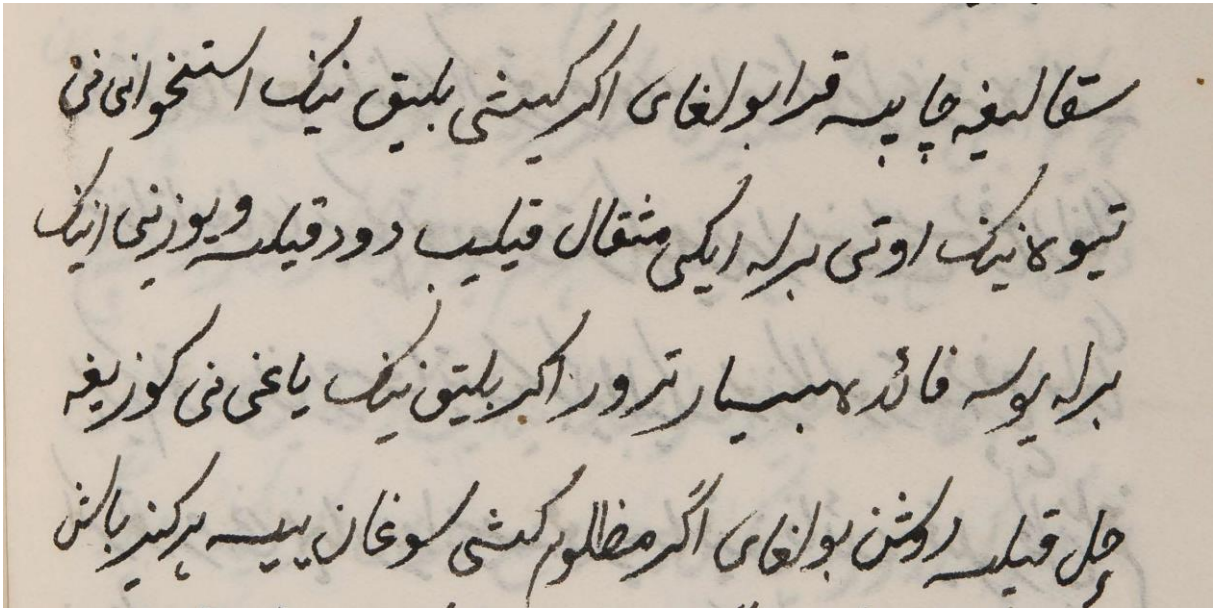 سقالیغه چاپسه قرا بولغای اکر کیشی بلیق نینک استخوانی نی
تیوه نینک اوتی برله ایکی مثقال قیلیب دود قیلسه و یوزنی انینک
برله یوسه فائده بسیار ترور اکر بلیق نینک یاغی نی کوزیغه
حل قیلسه روشن بولغای اگر مظلوم کیشی سوغان ییسه هرکیز باش